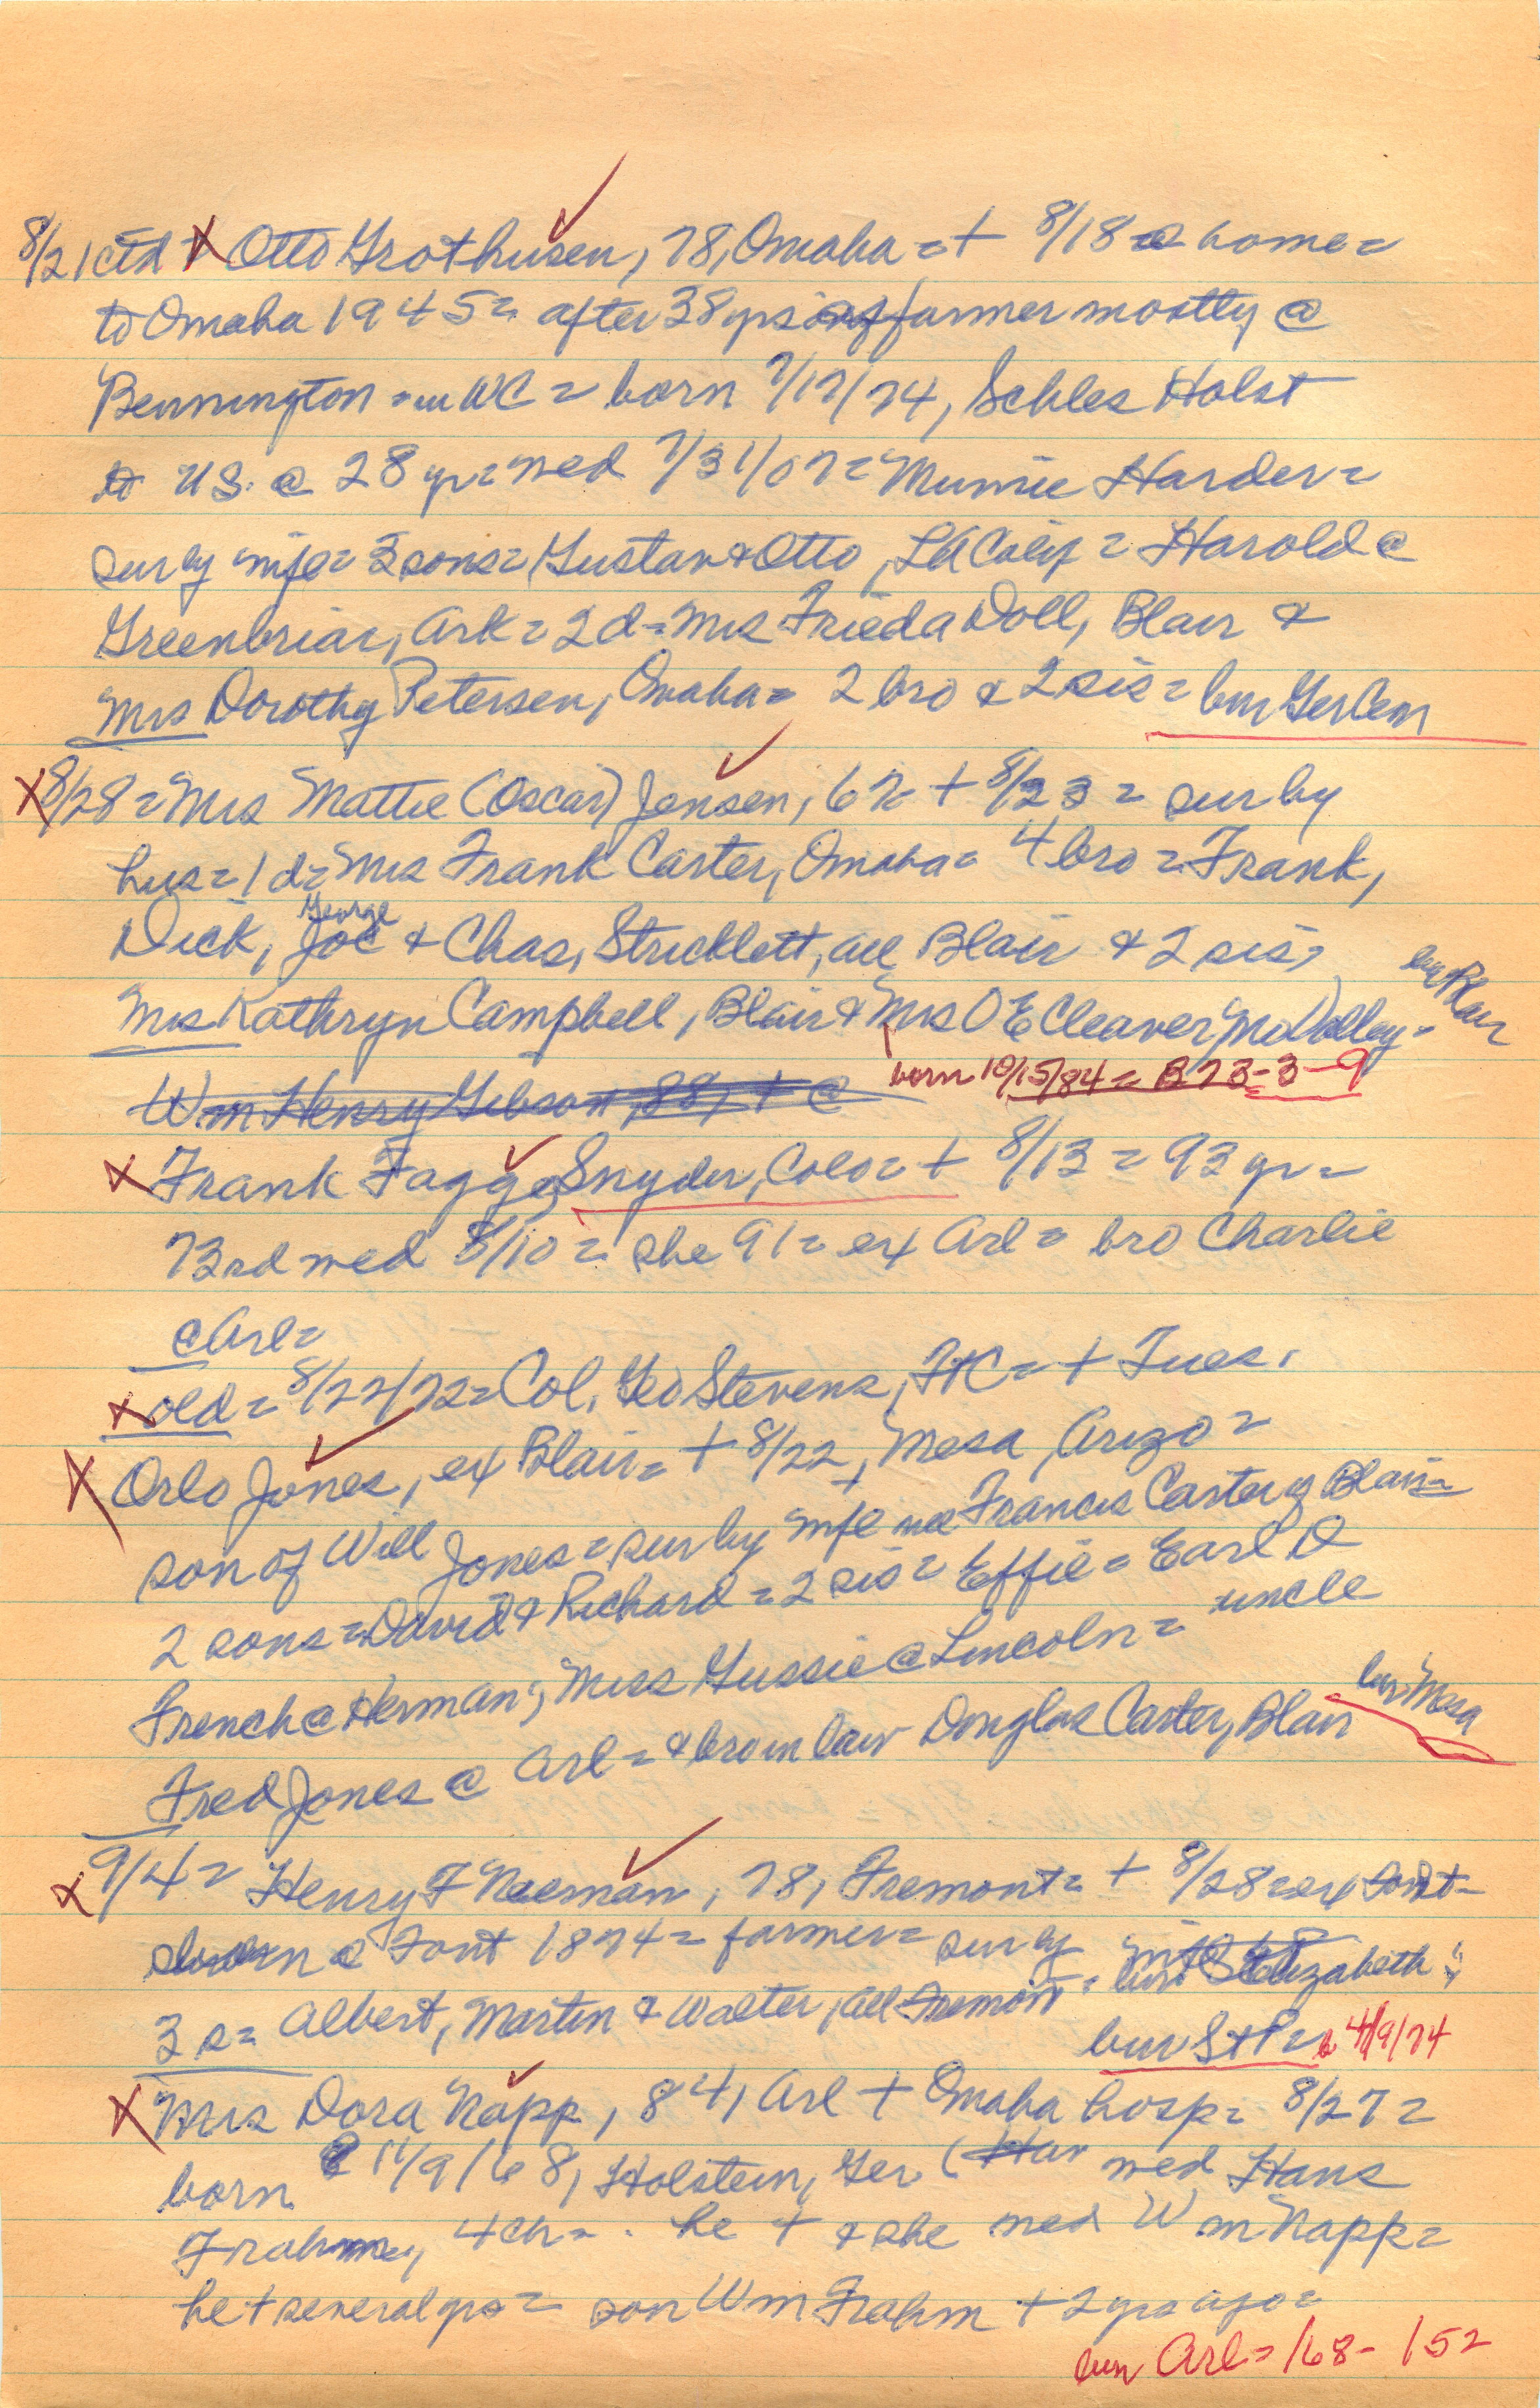 8/21 ctd X Otto Grothusen, 78, Omaha = + 8/18 @ home =
to Omaha 1945 = after 38 yrs as farmer mostly @
Bennington = in WC = born 7/17/74, Schles Holst
to US. @ 28 yr = wed 7/31/07 = Minnie Harder =
sur by wife = 3 sons = Gustav & Otto, LA Calif = Harold @
Greenbriar, Ark = 2 d = Mrs Frieda Doll, Blair &
Mrs Dorothy Petersen, Omaha = 2 bro & 2 sis = bur Ger Cem
X 8/28 = Mrs Mattie (Oscar) Jensen, 67 + 8/23 = sur by
hus = 1 d = Mrs Frank Carter, Omaha = 4 bro = Frank,
George
Dick, Joe & Chas, Stricklett, all Blair & 2 sis,
bur Blair
Mrs Kathryn Campbell, Blair & Mrs O E Cleaver, Mo Valley =
born 10/15/84 = B 73-3-9
Wm Henry Gibson, 88, + @
X Frank Fagg, Snyder, Colo = + 8/13 = 93 yr =
73rd wed 8/10 = she 91 = ex Arl = bro Charlie
@ Arl =
X old = 8/22/72 = Col. Geo Stevens, FtC = + Tues.
X Orlo Jones, ex Blair = + 8/22, Mesa, Arizo =
son of Will Jones = sur by wife nee Francis Carter of Blair =
2 sons = David & Richard = 2 sis = Effie = Earl D
French @ Herman; Miss Gussie @ Lincoln = uncle
Fred Jones @ Arl = & bro in law Douglas Carter, Blair
bur Mesa
X 9/4 = Henry F Neeman, 78, Fremont = + 8/28 = ex Font =
born @ Font 1874 = farmer = sur by wife Elizabeth =
3 s = Albert, Martin & Walter, all Fremont =
bur St P = b 4/9/74
X Mrs Dora Napp, 84, Arl + Omaha hosp = 8/27 =
born 11/9/68, Holstein, Ger (Har wed Hans
Frahm, 4 ch = . he + & she wed Wm Napp =
he + several yrs = son Wm Frahm + 2 yrs ago =
bur Arl = 168 - 152